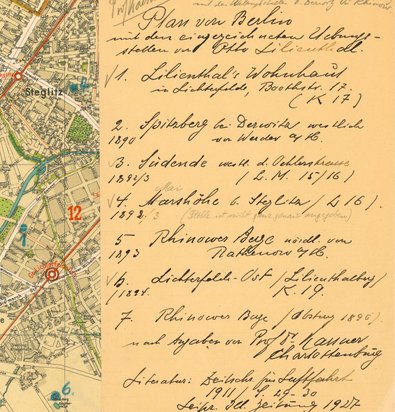 Plan von Berlin
mit den eingezeichneten Uebungs-
stellen von Otto Lilienthal.
√ 1. Lilienthal's Wohnhaus
in Lichterfelde, Boothstr. 17.
( K 17 )
2. Spitzberg bei Derwitz westlich
1890 von Werder a/H.
√ 3. Südende westl. d.
1892/3 ( L. M. 15/16 )
√ 4. Marshöhe b. Steglitz ( L 16 ).
1892/3 (Stelle ist nicht ganz genau angegeben)
5 Rhinower Berge nördl. von
1893 Rathenow a/H.
√ 6. Lichterfelde-Ost (Lilienthalberg)
/1894. K. 19.
7. Rhinower Berge (Absturz 1896)
nach Angaben von Prof. Dr.
Charlottenburg
Literatur: Zeitschr. für Luftfahrt
1911 /
Leipz. Ill. Zeitung 1927
Steglitz
12.
4.
6.